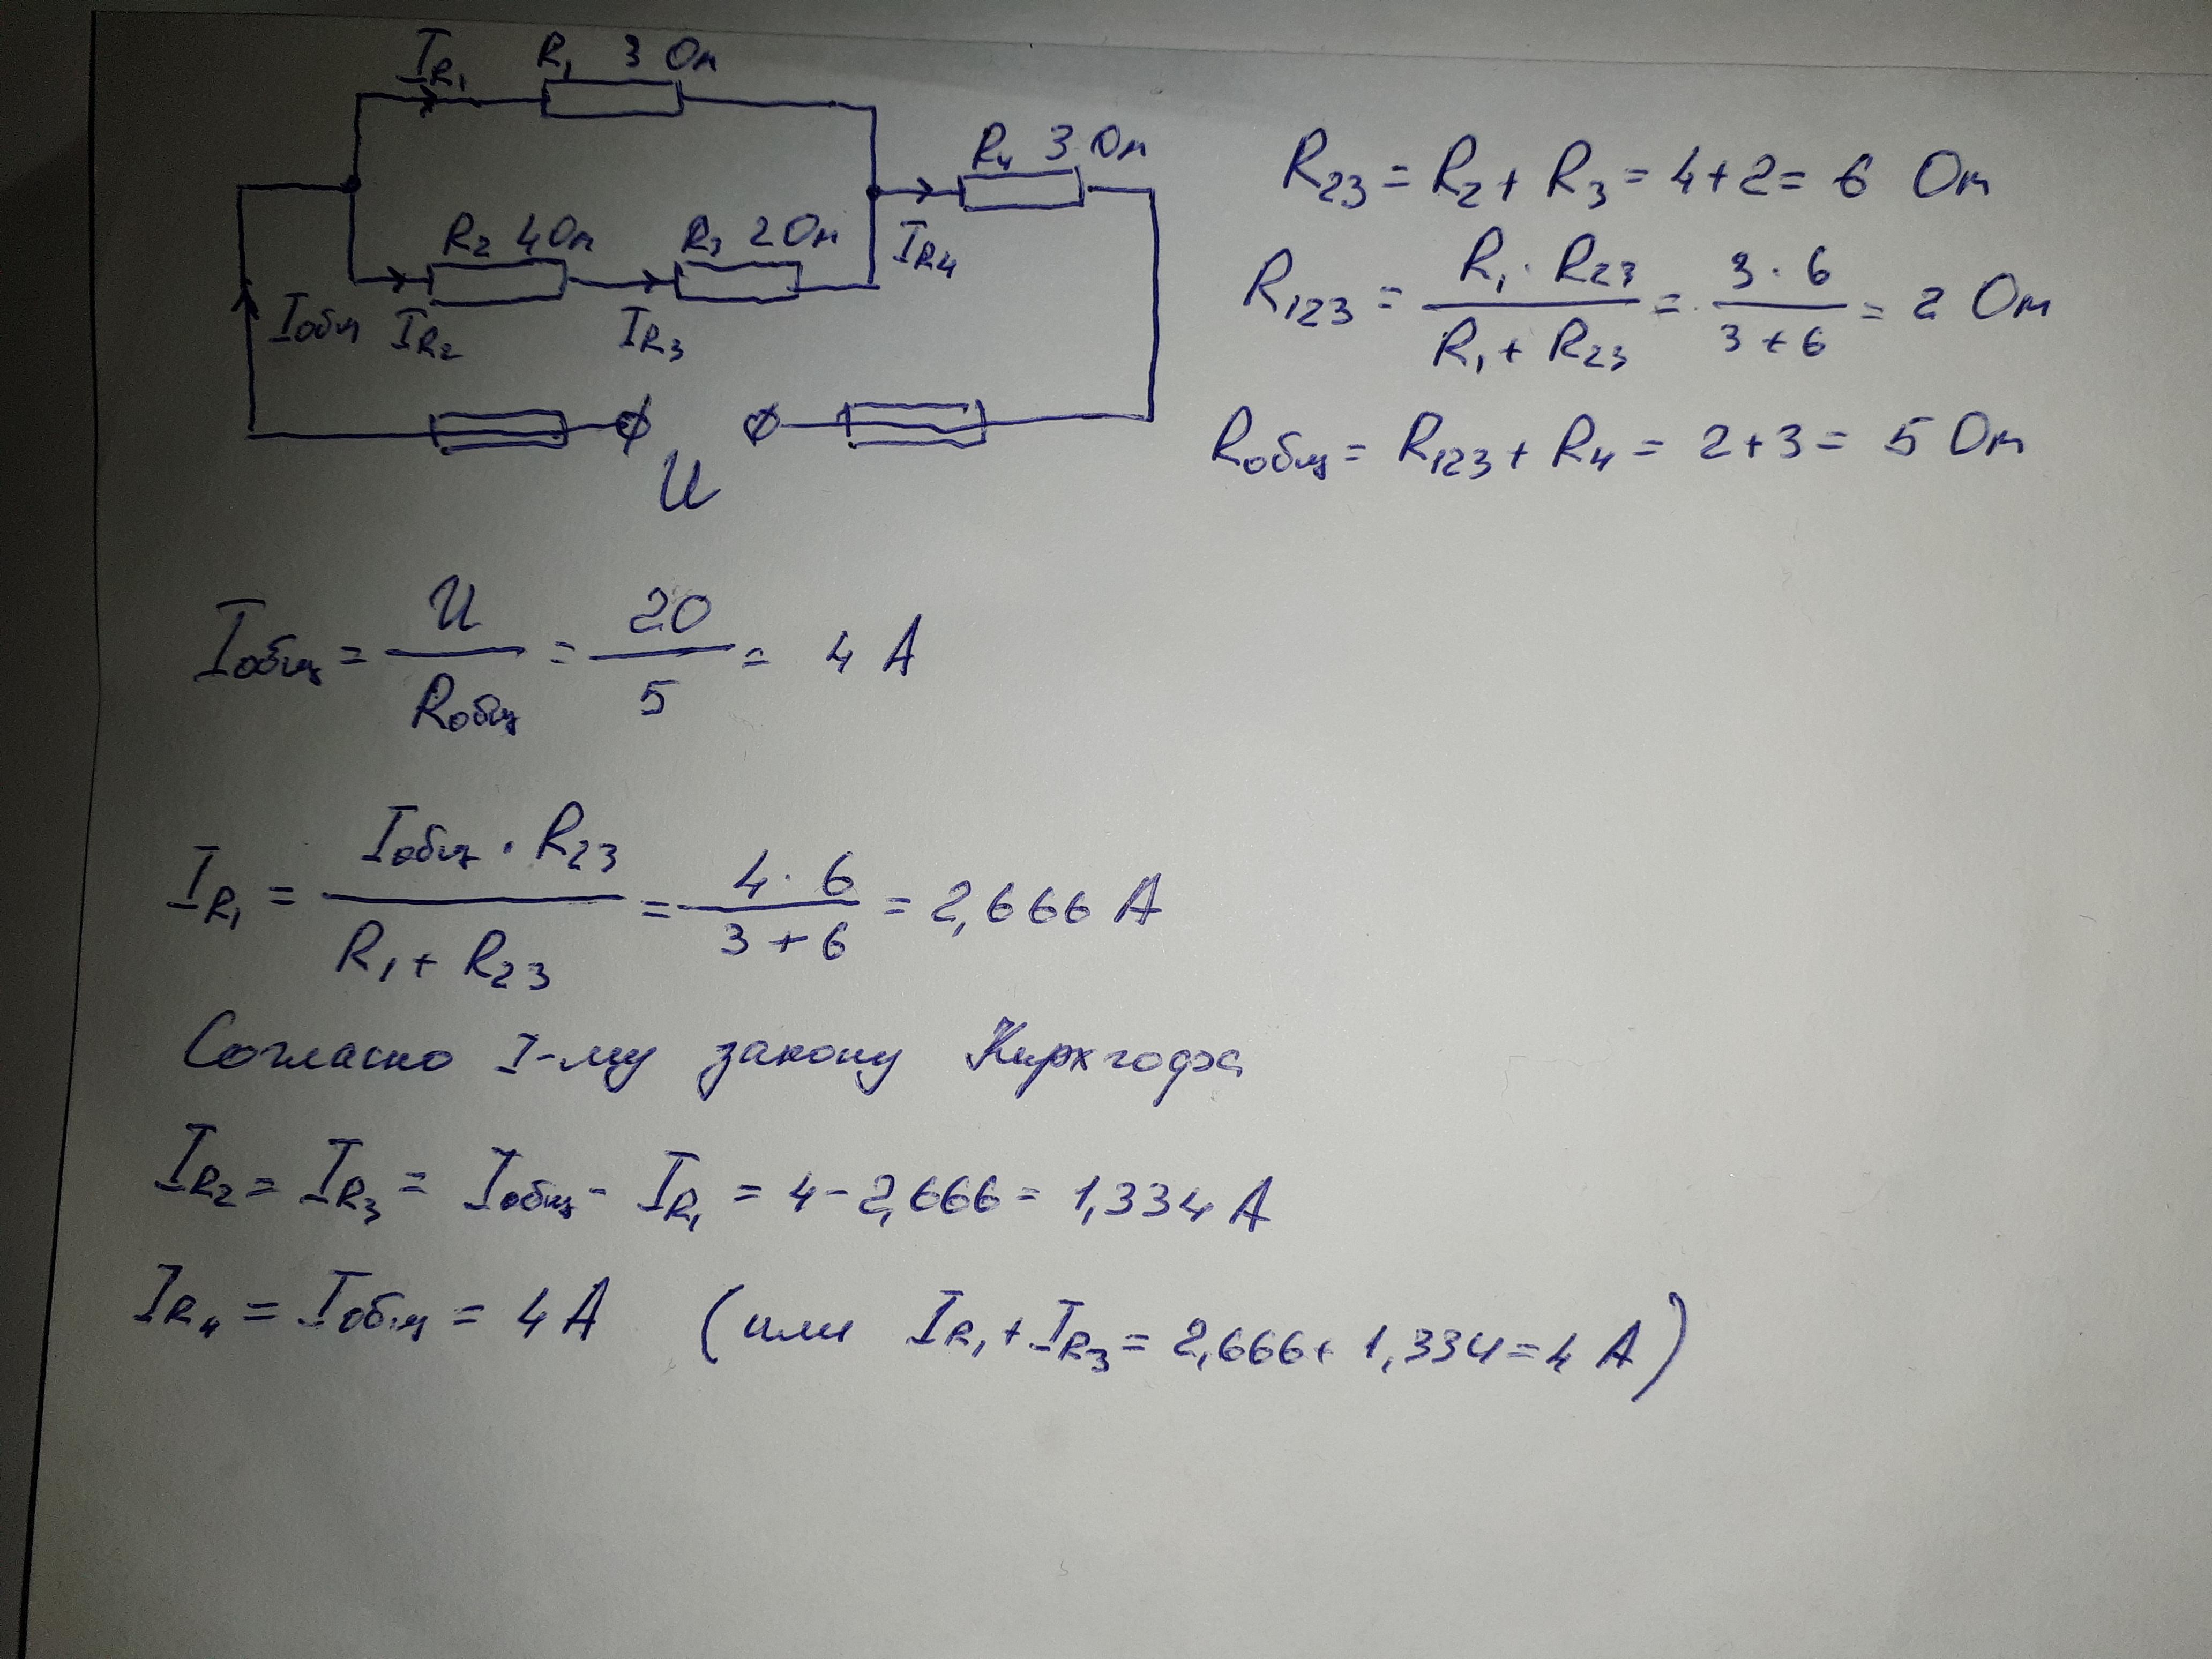 I_R1 R1 3 Ом
R4 3 Ом
R2 4 Ом R3 2 Ом
I_R4
Iобщ I_R2 I_R3
U
R23 = R2 + R3 = 4+2 = 6 Ом
R123 = (R1 · R23)/(R1 + R23) = (3 · 6)/(3 + 6) = 2 Ом
Rобщ = R123 + R4 = 2+3 = 5 Ом
Iобщ = U/Rобщ = 20/5 = 4 А
I_R1 = (Iобщ · R23)/(R1 + R23) = (4 · 6)/(3 + 6) = 2,666 А
Согласно I-му закону Кирхгофа
I_R2 = I_R3 = Iобщ - I_R1 = 4 - 2,666 = 1,334 А
I_R4 = Iобщ = 4 А (или I_R1 + I_R3 = 2,666 + 1,334 = 4 А)